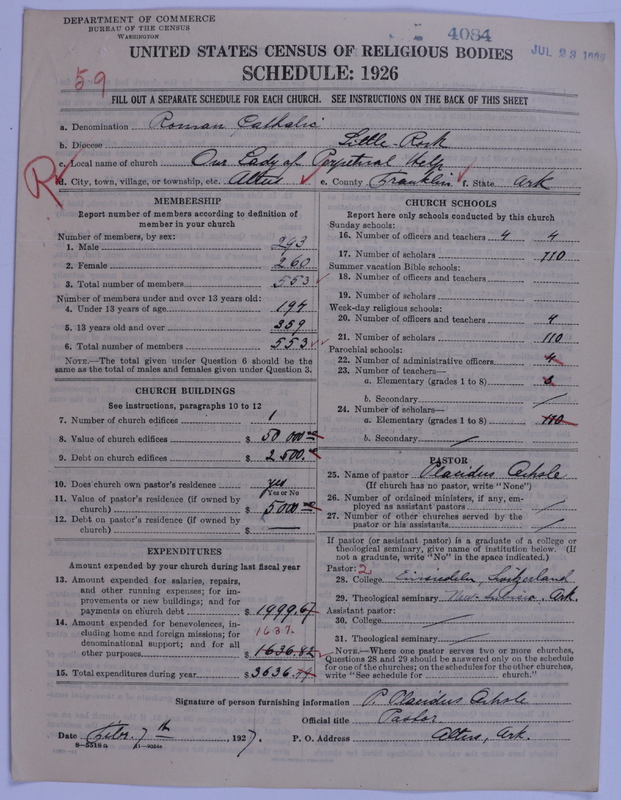 DEPARTMENT OF COMMERCE
BUREAU OF THE CENSUS
WASHINGTON
4084
JUL 23
UNITED STATES CENSUS OF RELIGIOUS BODIES
SCHEDULE: 1926
59
FILL OUT A SEPARATE SCHEDULE FOR EACH CHURCH. SEE INSTRUCTIONS ON THE BACK OF THIS SHEET
a. Denomination Roman Catholic
b. Diocese Little-Rock
c. Local name of church Our Lady of Perpetual Help
R
d. City, town, village, or township, etc. Altus e. County Franklin f. State Ark
MEMBERSHIP
Report number of members according to definition of
member in your church
Number of members, by sex:
1. Male 293
2. Female 260
3. Total number of members 553
Number of members under and over 13 years old:
4. Under 13 years of age 194
5. 13 years old and over 359
6. Total number of members 553
NOTE.—The total given under Question 6 should be
same as the total of males and females given under Question 3.
CHURCH BUILDINGS
See instructions, paragraphs 10 to 12
7. Number of church edifices 1
8. Value of church edifices $ 50 000
9. Debt on church edifices $ 2 500.
10. Does church own pastor's residence? yes
Yes or No
11. Value of pastor's residence (if owned by
church) $ 5000
12. Debt on pastor's residence (if owned by
church) $
EXPENDITURES
Amount expended by your church during last fiscal year
13. Amount expended for salaries, repairs,
and other running expenses; for im-
provements or new buildings; and for
payments on church debt $ 1999.67
14. Amount expended for benevolences, in-
cluding home and foreign missions; for
denominational support; and for all
other purposes $ 1636.82
1637.
15. Total expenditures during year $ 3636.
CHURCH SCHOOLS
Report here only schools conducted by this church
Sunday schools:
16. Number of officers and teachers 4 4
17. Number of scholars 110
Summer vacation Bible schools:
18. Number of officers and teachers
19. Number of scholars
Week-day religious schools:
20. Number of officers and teachers 4
21. Number of scholars 110
Parochial schools:
22. Number of administrative officers 4
23. Number of teachers—
a. Elementary (grades 1 to 8) 3
b. Secondary
24. Number of scholars—
a. Elementary (grades 1 to 8) 110
b. Secondary
PASTOR
25. Name of pastor Placidus
(If church has no pastor, write "None")
26. Number of ordained ministers, if any, em-
ployed as assistant pastors
27. Number of other churches served by the
pastor or his assistants
If pastor (or assistant pastor) is a graduate of a college or
theological seminary, give name of institution below. (If
not a graduate, write "No" in the space indicated.)
Pastor: 2
28. College Einsiedeln, Switzerland
29. Theological seminary New Subiaco, Ark.
Assistant pastor:
30. College
31. Theological seminary
NOTE.—Where one pastor serves two or more churches,
Questions 28 and 29 should be answered only on the schedule
for one of the churches; on the schedules for the other churches,
write "See schedule for church."
Signature of person furnishing information P. Placidus
Official title Pastor
Date Febr. 7th, 1927. P. O. Address Altus, Ark.
8-5518a